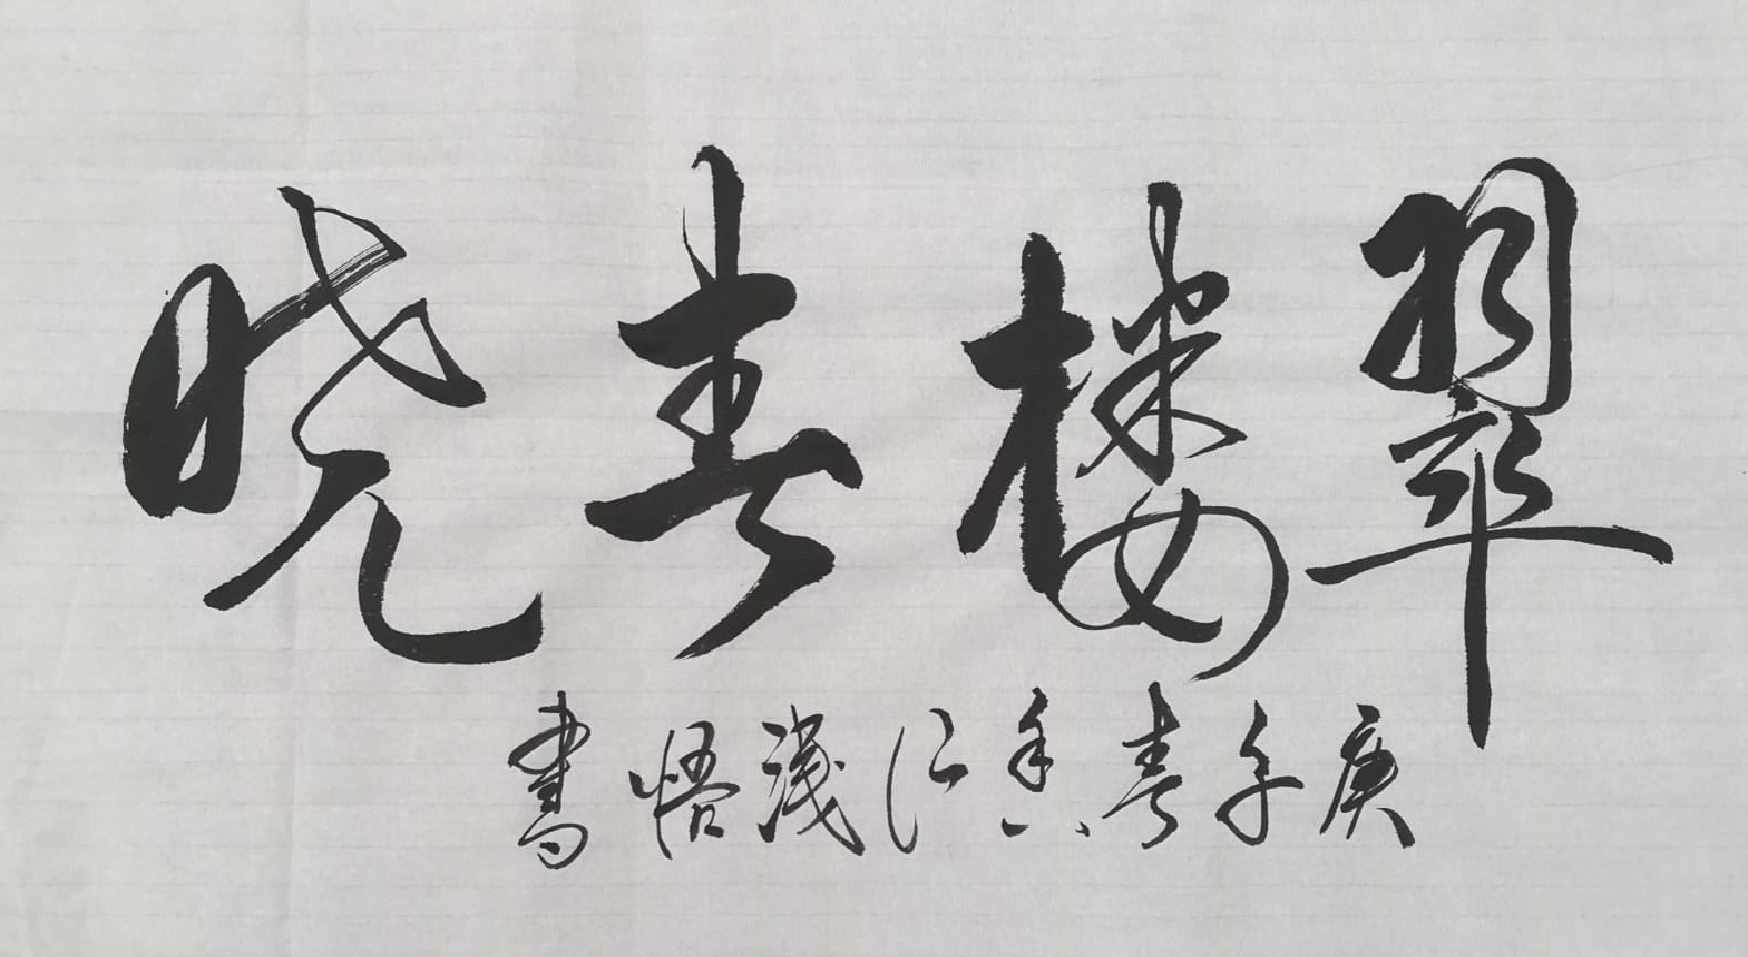 翠楼春晓
庚子春香江浅悟書